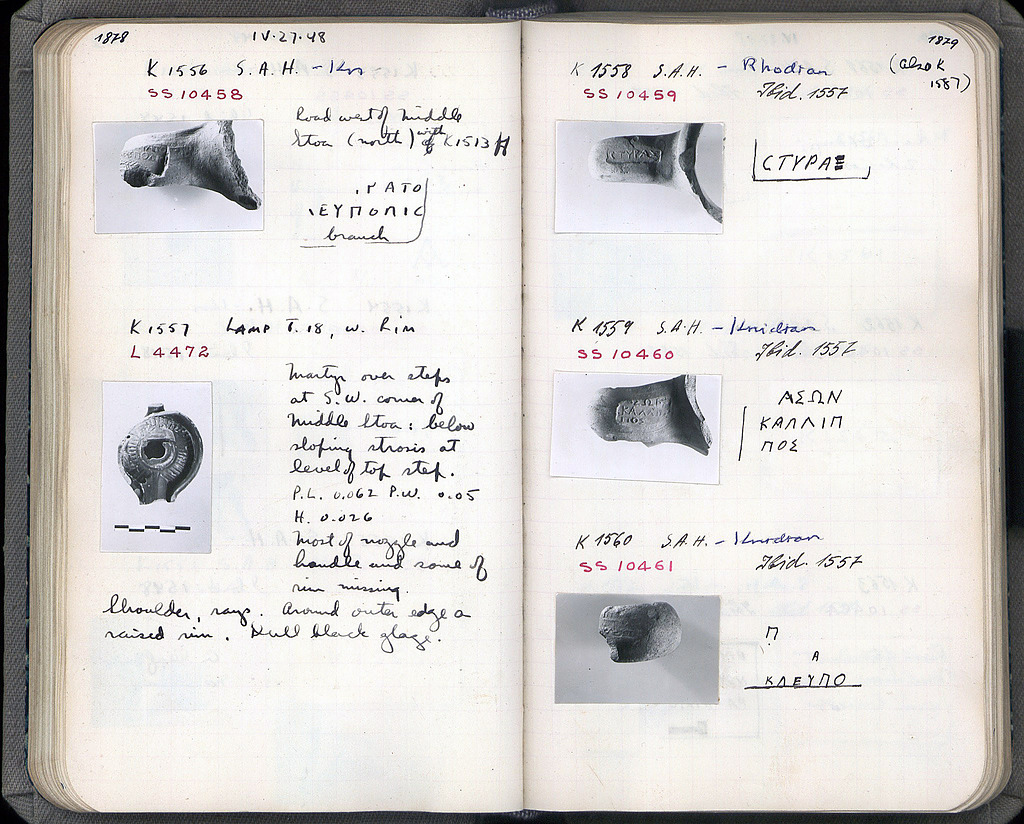 1878 IV·27·48
K 1556 S.A.H. - Kn
SS 10458
Road west of Middle
Stoa (north) with K1513 H
. ΡΑΤΟ
ΕΥΠΟΛΙC
branch
K 1557 Lamp T. 18, w. Rim
L 4472
Martyr over steps
at S.W. corner of
Middle Stoa: below
sloping strosis at
level of top step.
P.L. 0.062 P.W. 0.05
H. 0.026
Most of nozzle and
handle and some of
rim missing.
Shoulder, rays. Around outer edge a
raised rim. Dull black glaze.
1879
K 1558 S.A.H. - Rhodian (also K
1587)
SS 10459 Ibid. 1557
CΤΥΡΑΞ
K 1559 S.A.H. - Knidian
SS 10460 Ibid. 1557
ΑΣΩΝ
ΚΑΛΛΙΠ
ΠΟΣ
K 1560 S.A.H. - Knidian
SS 10461 Ibid. 1557
Π
Α
ΚΛΕΥΠΟ